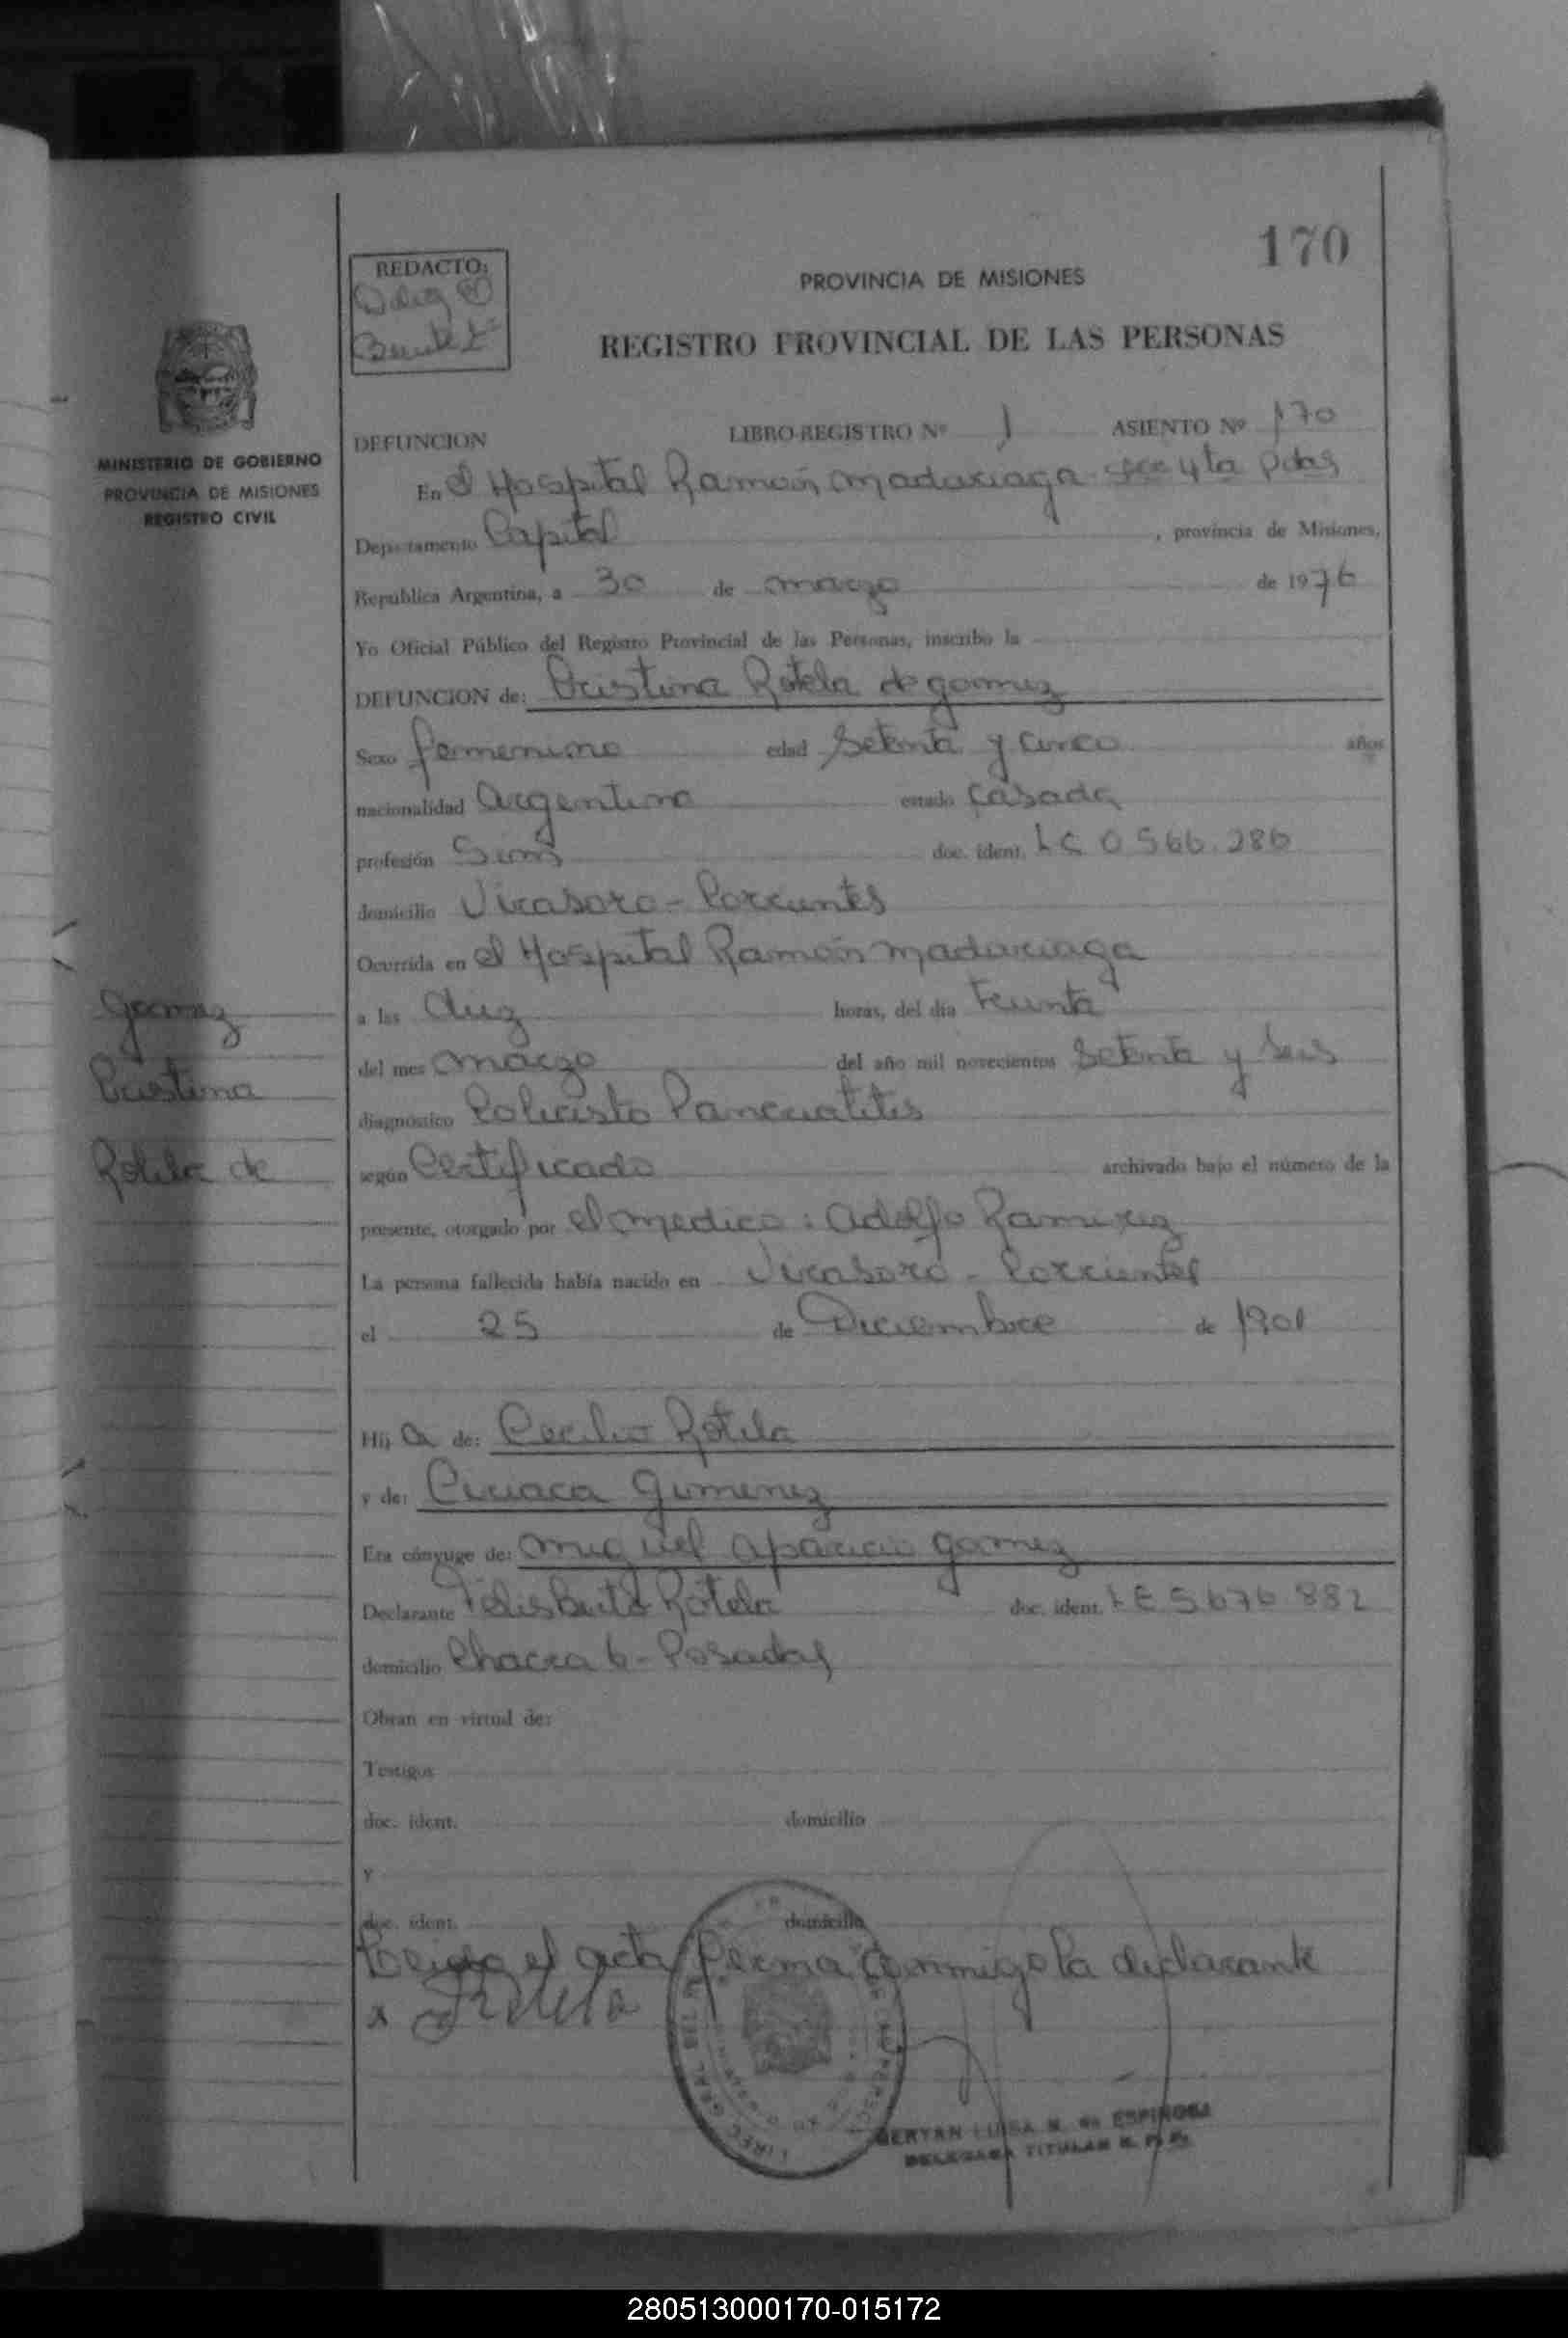 170
REDACTO:
PROVINCIA DE MISIONES
REGISTRO PROVINCIAL DE LAS PERSONAS
MINISTERIO DE GOBIERNO
PROVINCIA DE MISIONES
REGISTRO CIVIL
DEFUNCION LIBRO-REGISTRO Nº 1 ASIENTO Nº 170
En el Hospital Ramón Madariaga - Secc 4ta Pdas
Departamento Capital , provincia de Misiones,
República Argentina, a 30 de marzo de 1976
Yo Oficial Público del Registro Provincial de las Personas, inscribo la
DEFUNCION de: Cristina Rotela de Gomez
Sexo femenino edad Setenta y cinco años
nacionalidad Argentina estado Casada
profesión doc. ident. LC 0.566.286
domicilio Virasoro - Corrientes
Ocurrida en el Hospital Ramón Madariaga
a las diez horas, del día treinta
del mes marzo del año mil novecientos Setenta y Seis
diagnóstico Colicisto Pancreatitis
según Certificado archivado bajo el número de la
presente, otorgado por el medico: Adolfo Ramirez
La persona fallecida había nacido en Virasoro - Corrientes
el 25 de Diciembre de 1901
Gomez
Cristina
Rotela de
Hij a de: Cecilio Rotela
y de: Ciriaca Gimenez
Era cónyuge de: Miguel Aparicio Gomez
Declarante Felisberto Rotela doc. ident. LE 5676 882
domicilio Chacra 6 - Posadas
Obran en virtud de:
Testigos
doc. ident. domicilio
y
doc. ident. domicilio
Leida el acta firma conmigo la declarante
x
LUISA N. de ESPINOSA
DELEGADA TITULAR R. P. P.
280513000170-015172